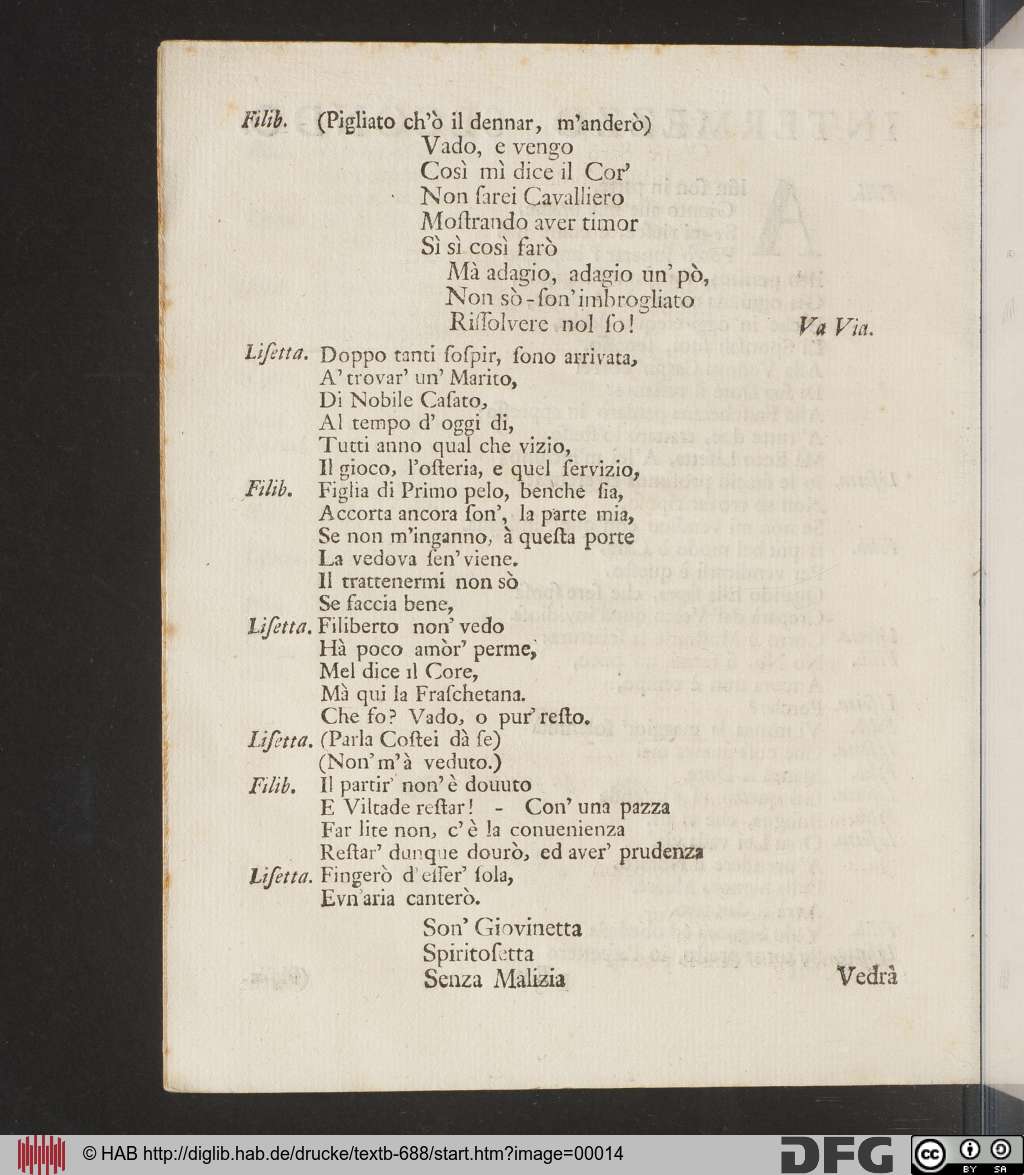 Filib. (Pigliato ch'ò il dennar, m'anderò)
Vado, e vengo
Così mì dice il Cor'
Non ſarei Cavalliero
Moſtrando aver timor
Sì sì così farò
Mà adagio, adagio un' pò,
Non sò - ſon' imbrogliato
Riſſolvere nol ſo! Va Via.
Liſetta. Doppo tanti ſoſpir, ſono arrivata,
A' trovar' un' Marito,
Di Nobile Caſato,
Al tempo d' oggi di,
Tutti anno qual che vizio,
Il gioco, l'oſteria, e quel ſervizio,
Filib. Figlia di Primo pelo, benche ſia,
Accorta ancora ſon', la parte mia,
Se non m'inganno, à queſta porte
La vedova ſen' viene.
Il trattenermi non sò
Se faccia bene,
Liſetta. Filiberto non' vedo
Hà poco amòr' perme,
Mel dice il Core,
Mà qui la Fraſchetana.
Che fo? Vado, o pur' reſto.
Liſetta. (Parla Coſtei dà ſe)
(Non' m'à veduto.)
Filib. Il partir' non' è douuto
E Viltade reſtar! - Con' una pazza
Far lite non, c' è la conuenienza
Reſtar' dunque dourò, ed aver' prudenza
Liſetta. Fingerò d'eſſer' ſola,
Evn'aria canterò.
Son' Giovinetta
Spiritoſetta
Senza Malizia Vedrà
© HAB http://diglib.hab.de/drucke/textb-688/start.htm?image=00014
DFG
cc BY SA